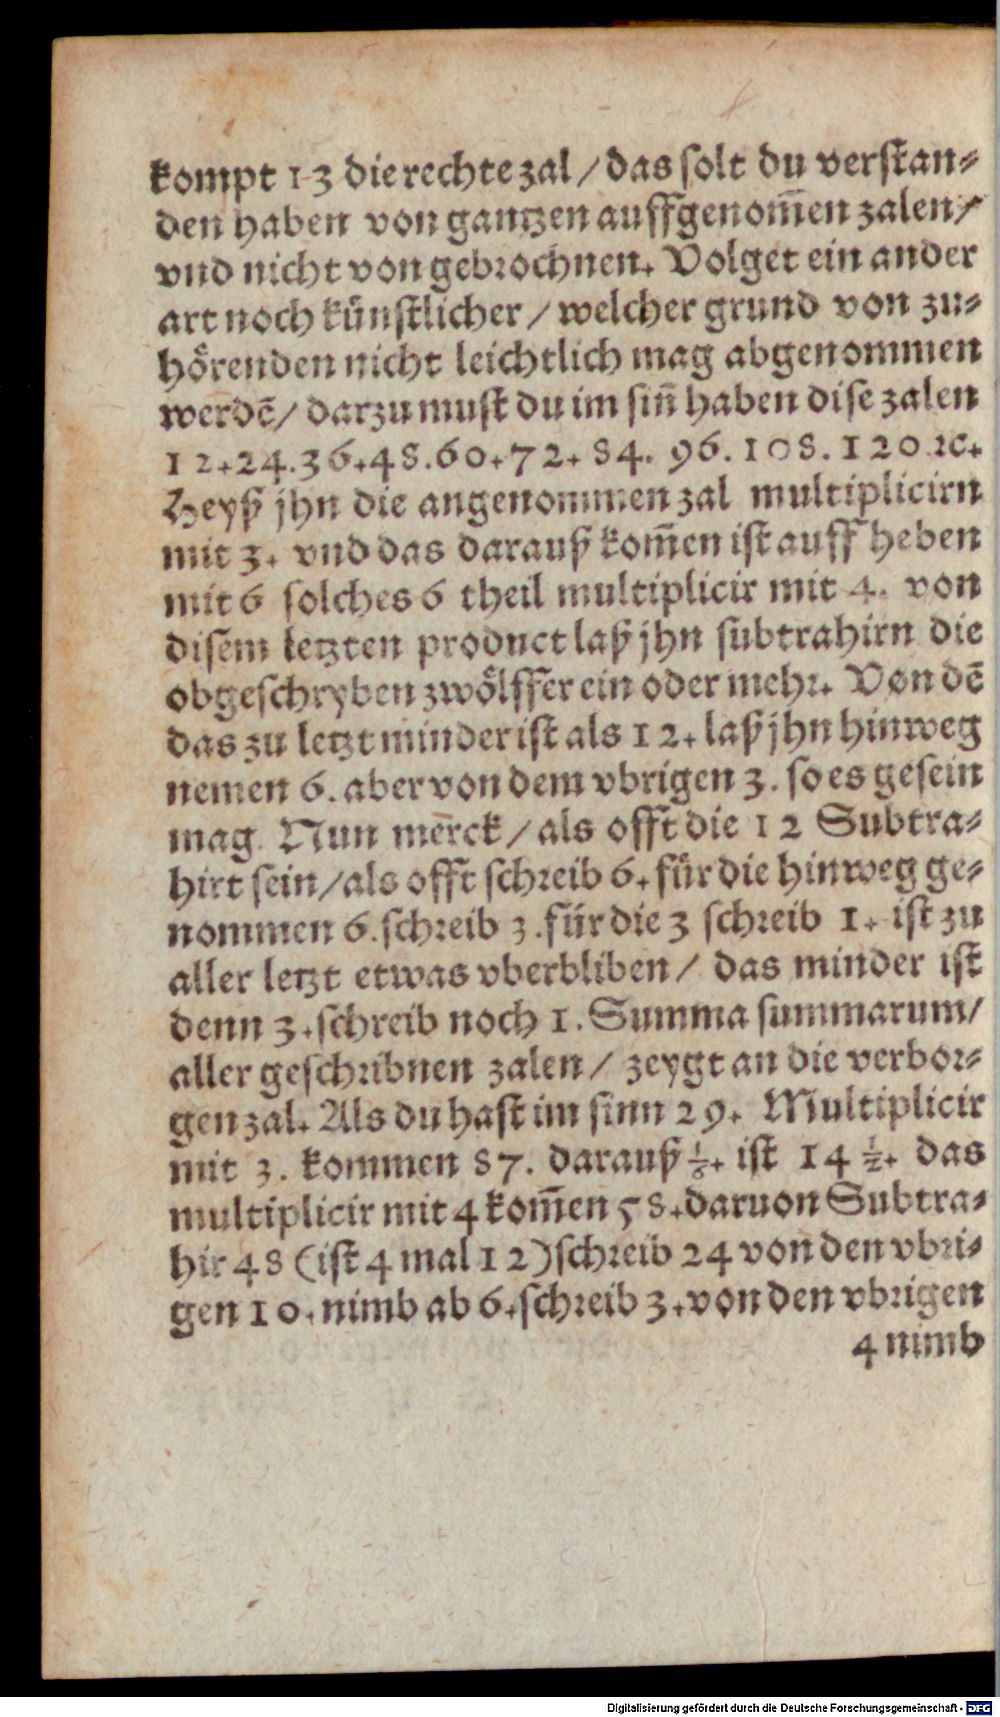 kompt 13 die rechte zal / das solt du verstan⸗
den haben von gantzen auffgenom̃en zalen /
vnd nicht von gebrochnen. Volget ein ander
art noch künstlicher / welcher grund von zu⸗
hoͤrenden nicht leichtlich mag abgenommen
werdẽ / darzu must du im siñ haben dise zalen
12.24.36.48.60.72.84.96.108.120 ꝛc.
Heyß jhn die angenommen zal multiplicirn
mit 3. vnd das darauß kom̃en ist auff heben
mit 6 solches 6 theil multiplicir mit 4. von
disem letzten product laß jhn subtrahirn die
obgeschryben zwoͤlffer ein oder mehr. Von dẽ
das zu letzt minder ist als 12. laß jhn hinweg
nemen 6. aber von dem vbrigen 3. so es gesein
mag. Nun mẽrck / als offt die 12 Subtra⸗
hirt sein / als offt schreib 6. für die hinweg ge⸗
nommen 6. schreib 3. für die 3 schreib 1. ist zu
aller letzt etwas vberbliben / das minder ist
denn 3. schreib noch 1. Summa summarum /
aller geschribnen zalen / zeygt an die verbor⸗
gen zal. Als du hast im sinn 29. Multiplicir
mit 3. kommen 87. darauß 1/6. ist 14 1/2. das
multiplicir mit 4 kom̃en 58. daruon Subtra⸗
hir 48 (ist 4 mal 12) schreib 24 von den vbri⸗
gen 10. nimb ab 6. schreib 3. von den vbrigen
4 nimb
Digitalisierung gefördert durch die Deutsche Forschungsgemeinschaft - DFG